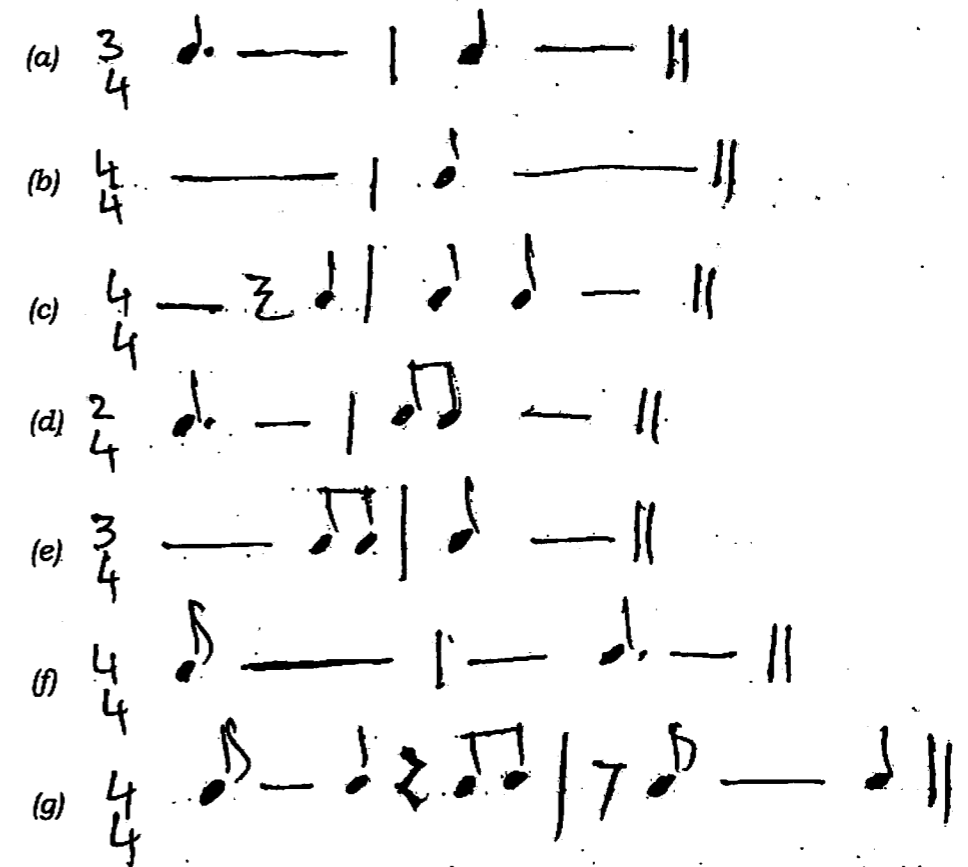 (a) 3/4 ♩. — | ♩ — ||
(b) 4/4 — | ♩ — ||
(c) 4/4 — 𝄽 ♩ | ♩ ♩ — ||
(d) 2/4 ♩. — | ♫ — ||
(e) 3/4 — ♫ | ♩ — ||
(f) 4/4 ♪ — | — ♩. — ||
(g) 4/4 ♪ — ♩ 𝄽 ♫ | 𝄾 ♪ — ♩ ||